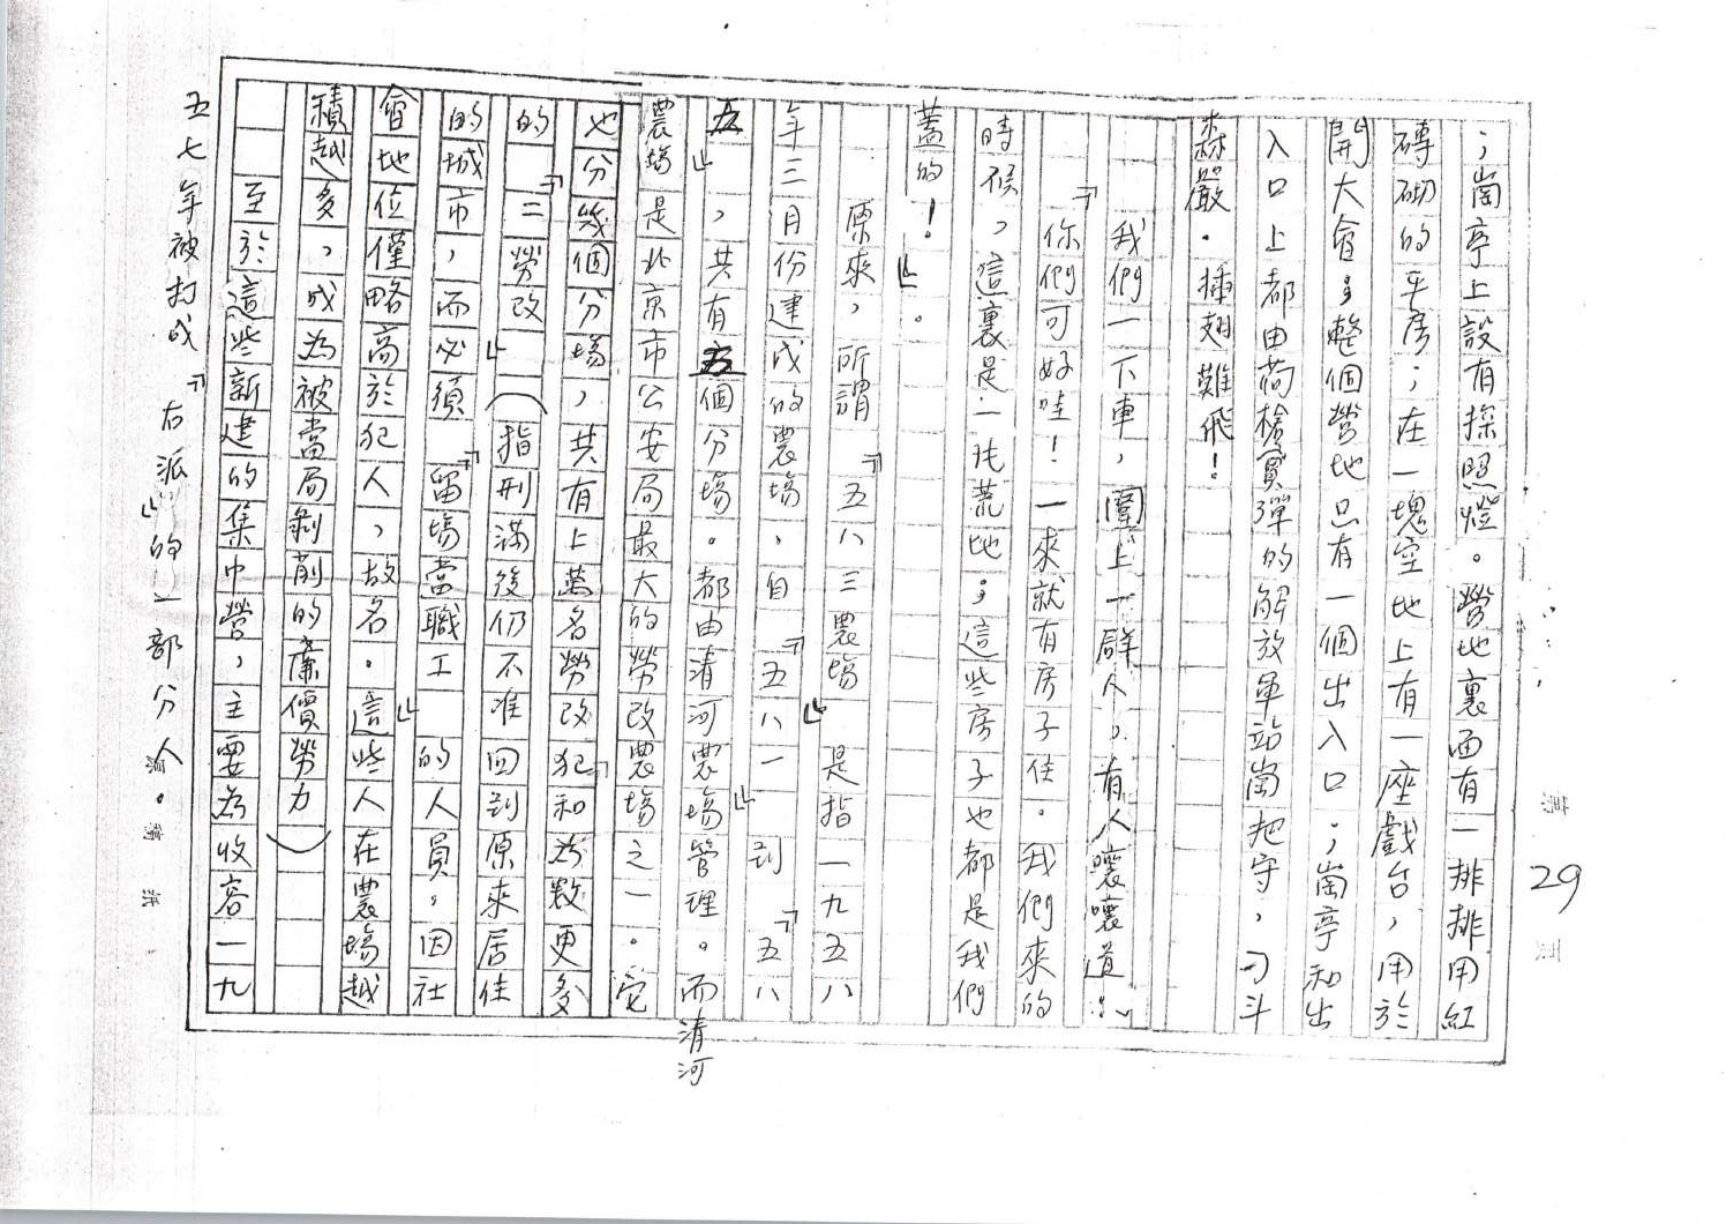 29
；崗亭上設有探照燈。營地裏面有一排排用紅
磚砌的平房；在一塊空地上有一座戲台，用於
開大會；整個營地只有一個出入口；崗亭和出
入口上都由荷槍實彈的解放軍站崗把守，刁斗
森嚴．插翅難飛！
我們一下車，圍上一群人，有人嚷嚷道：
『你們可好哇！一來就有房子住。我們來的
時候，這裏是一片荒地；這些房子也都是我們
蓋的！』。
原來，所謂『五八三農場』是指一九五八
年三月份建成的農場，自『五八一』到『五八
五』，共有五個分場。都由清河農場管理。而清河
農場是北京市公安局最大的勞改農場之一。它
也分幾個分場，共有上萬名勞改犯和為數更多
的『二勞改』（指刑滿後仍不准回到原來居住
的城市，而必須『留場當職工』的人員，因社
會地位僅略高於犯人，故名。這些人在農場越
積越多，成為被當局剝削的廉價勞力）
至於這些新建的集中營，主要為收容一九
五七年被打成『右派』的一部分人。